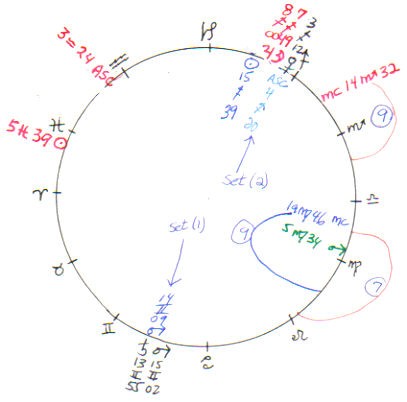 ♑
8 7 3
♐ ♐ ♐
00 49 12
♃ ☽ ♀
3 ♒ 24 ASC
♒
☉
15
♐
39
ASC
4
♐
20
mc 14 ♏ 32
♏
9
5 ♓ 39 ☉
♓
set (2)
♈
♎
19 ♍ 46 mc
set (1)
9
5 ♍ 34 ♂
♍
♉
7
14
♊
09
♂
♊
♋
♌
5 ♂
13 15
♊ ♊
55 02